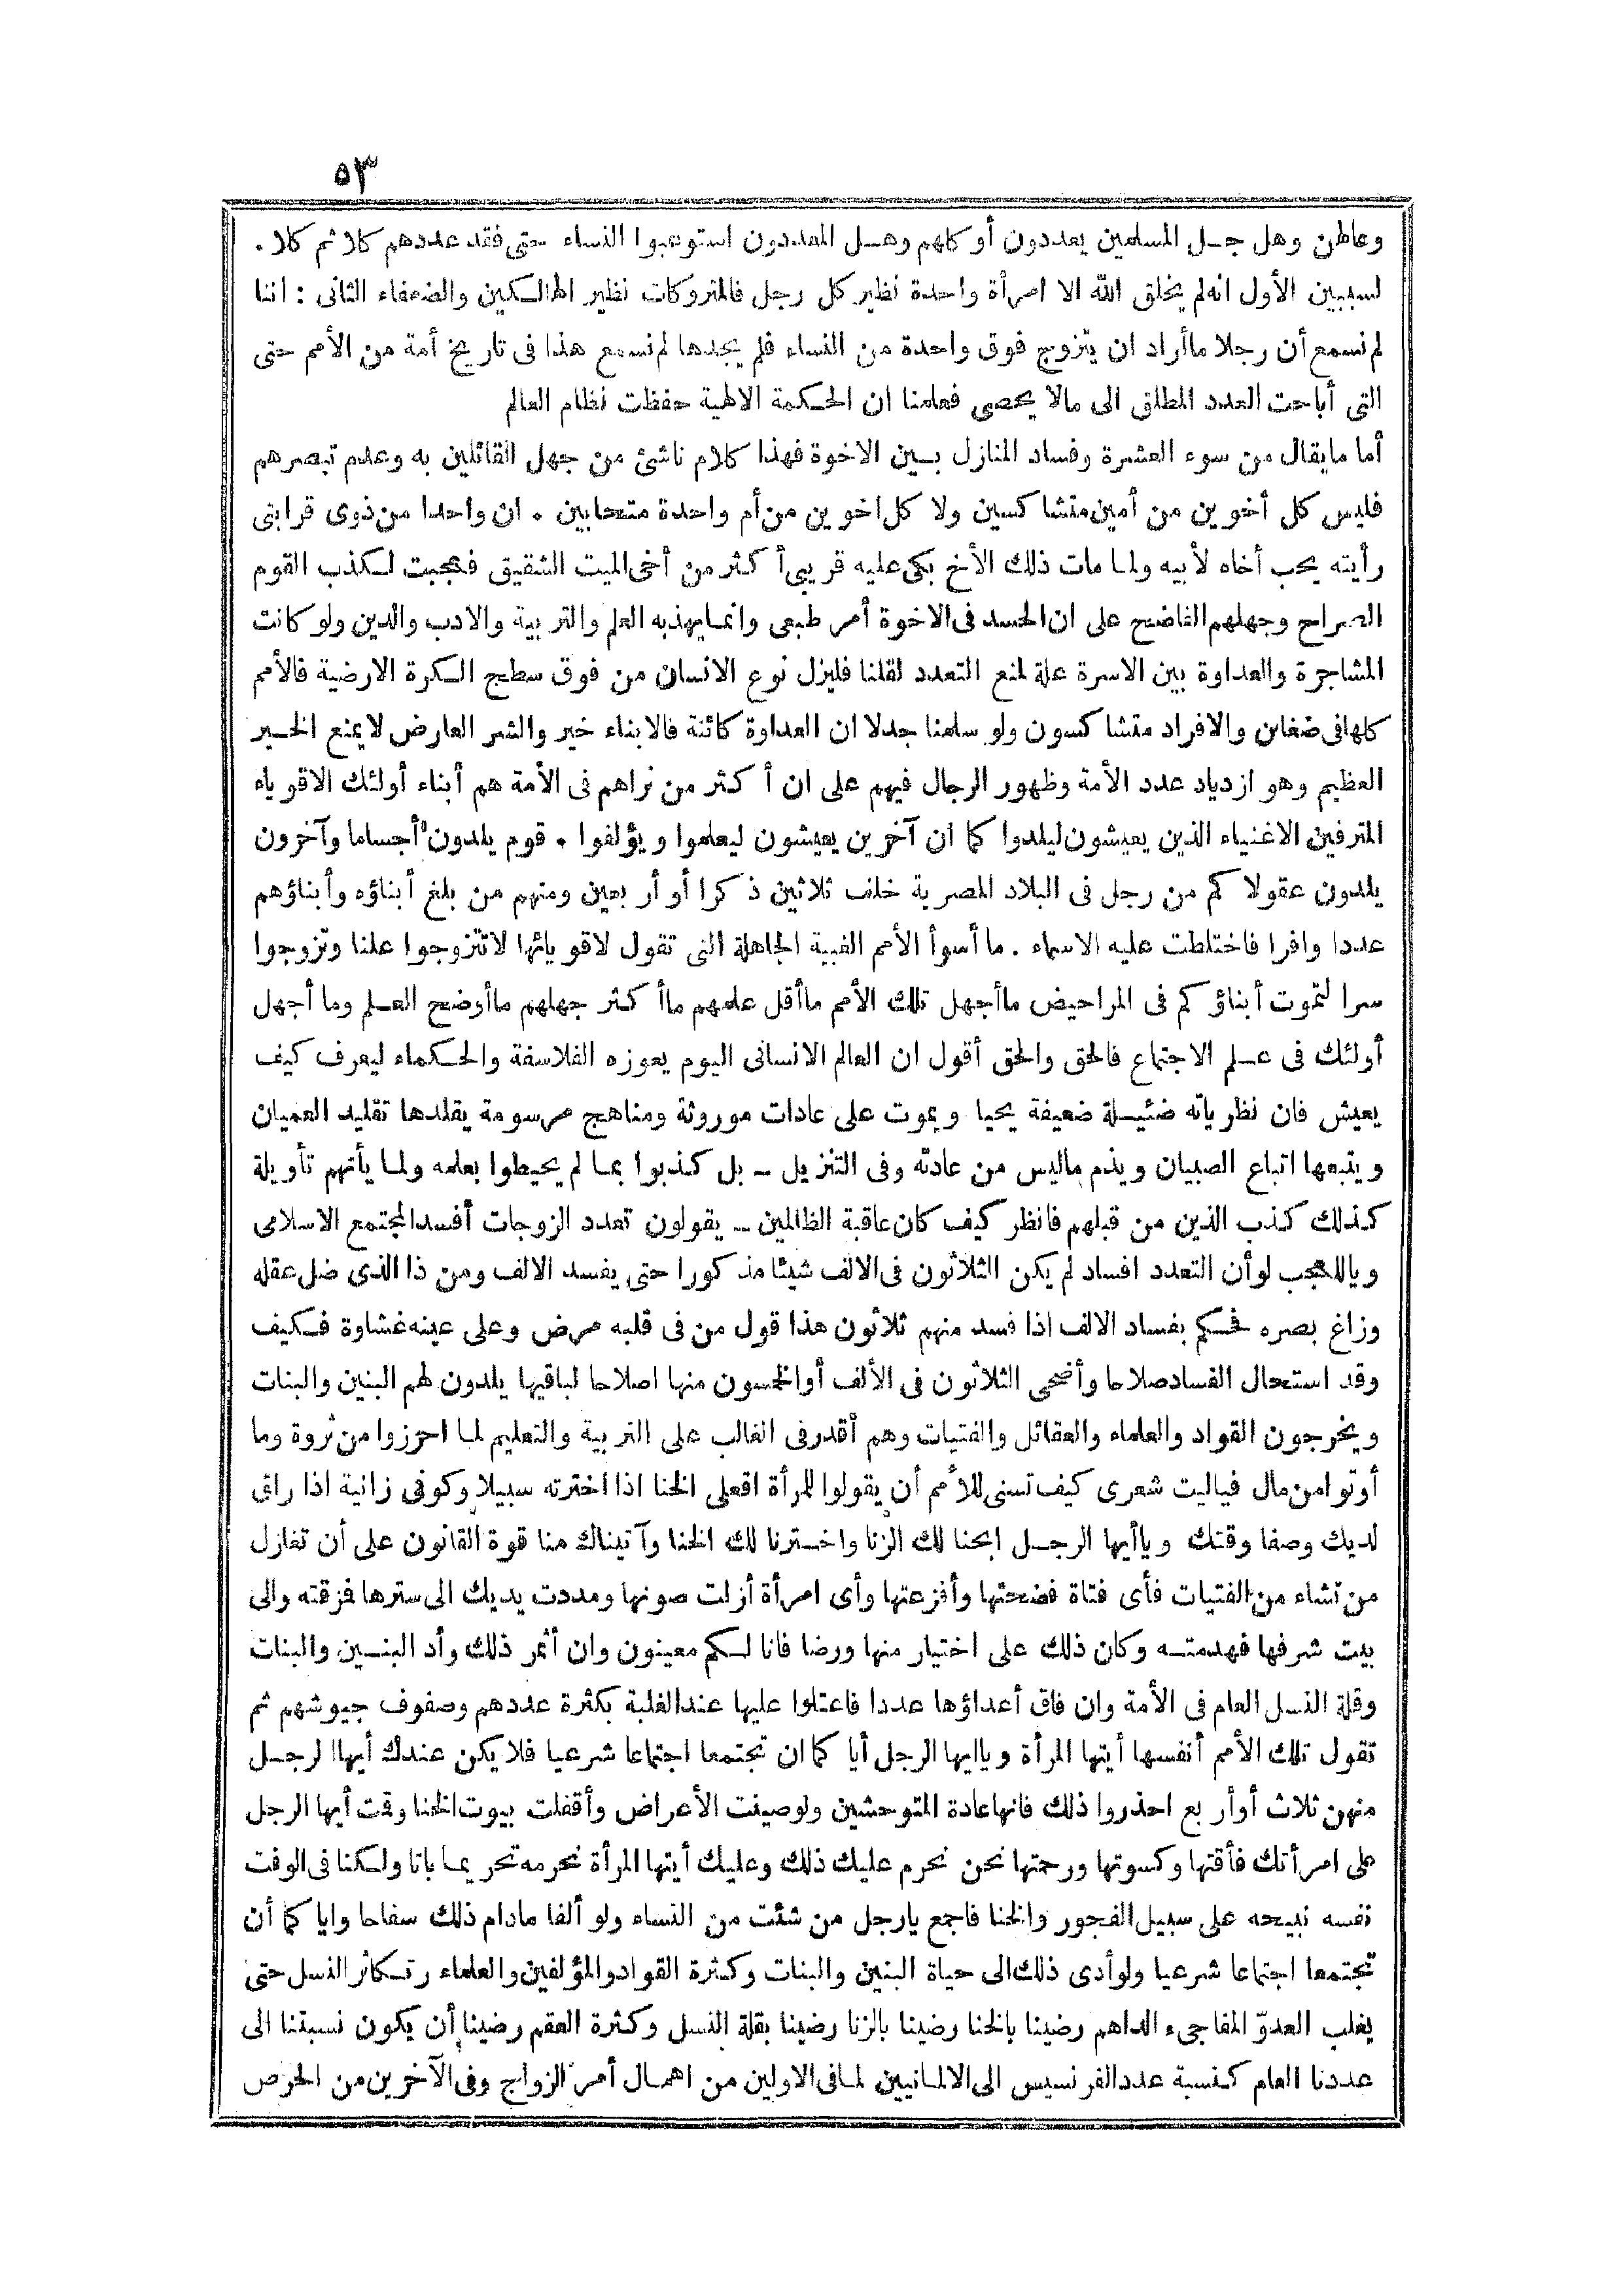 ٥٣
وعاطن وهل جل المسلمين يعددون أو كلهم وهل المعددون استوعبوا النساء حتى فقد عددهم كلا ثم كلا .
لسببين الأول انه لم يخلق الله الا امرأة واحدة نظير كل رجل فالمتروكات نظير الهالكين والضعفاء الثانى : اننا
لم نسمع أن رجلا ما أراد ان يتزوج فوق واحدة من النساء فلم يجدها لم نسمع هذا فى تاريخ أمة من الأمم حتى
التى أباحت العدد المطلق الى مالا يحصى فعلمنا ان الحكمة الالهية حفظت نظام العالم
أما مايقال من سوء العشرة وفساد المنازل بين الاخوة فهذا كلام ناشئ من جهل القائلين به وعدم تبصرهم
فليس كل أخوين من أمين متشاكسين ولا كل اخوين من أم واحدة متحابين . ان واحدا من ذوى قرابتى
رأيته يحب أخاه لأبيه ولما مات ذلك الأخ بكى عليه قريبى أكثر من أخى الميت الشقيق فعجبت لكذب القوم
الصراح وجهلهم الفاضح على ان الحسد فى الاخوة أمر طبعى وانما يهذبه العلم والتربية والادب والدين ولو كانت
المشاجرة والعداوة بين الاسرة علة لمنع التعدد لقلنا فليزل نوع الانسان من فوق سطح الكرة الارضية فالأمم
كلها فى ضغائن والافراد متشاكسون ولو سلمنا جدلا ان العداوة كائنة فالابناء خير والشر العارض لا يمنع الخير
العظيم وهو ازدياد عدد الأمة وظهور الرجال فيهم على ان أكثر من نراهم فى الأمة هم أبناء أولئك الاقوياء
المترفين الاغنياء الذين يعيشون ليلدوا كما ان آخرين يعيشون ليعلموا ويؤلفوا . قوم يلدون أجساما وآخرون
يلدون عقولا كم من رجل فى البلاد المصرية خلف ثلاثين ذكرا أو أربعين ومنهم من بلغ أبناؤه وأبناؤهم
عددا وافرا فاختلطت عليه الاسماء . ما أسوأ الأمم الغبية الجاهلة التى تقول لاقويائها لاتتزوجوا علنا وتزوجوا
سرا لتموت أبناؤكم فى المراحيض ما أجهل تلك الأمم ما أقل علمهم ما أكثر جهلهم ما أوضح العلم وما أجهل
أولئك فى علم الاجتماع فالحق والحق أقول ان العالم الانسانى اليوم يعوزه الفلاسفة والحكماء ليعرف كيف
يعيش فان نظرياته ضئيلة ضعيفة يحيا ويموت على عادات موروثة ومناهج مرسومة يقلدها تقليد العميان
ويتبعها اتباع الصبيان ويذم ماليس من عادته وفى التنزيل ــ بل كذبوا بما لم يحيطوا بعلمه ولما يأتهم تأويله
كذلك كذب الذين من قبلهم فانظر كيف كان عاقبة الظالمين ــ يقولون تعدد الزوجات أفسد المجتمع الاسلامى
وياللعجب لو أن التعدد افساد لم يكن الثلاثون فى الالف شيئا مذكورا حتى يفسد الالف ومن ذا الذى ضل عقله
وزاغ بصره فحكم بفساد الالف اذا فسد منهم ثلاثون هذا قول من فى قلبه مرض وعلى عينه غشاوة فكيف
وقد استحال الفساد صلاحا وأضحى الثلاثون فى الألف أو الخمسون منها اصلاحا لباقيها يلدون لهم البنين والبنات
ويخرجون القواد والعلماء والعقائل والفتيات وهم أقدر فى الغالب على التربية والتعليم لما احرزوا من ثروة وما
أوتوا من مال فياليت شعرى كيف تسنى للأمم أن يقولوا للمرأة افعلى الخنا اذا اخترته سبيلا وكونى زانية اذا راق
لديك وصفا وقتك وياأيها الرجل ابحنا لك الزنا واخترنا لك الخنا وآتيناك منا قوة القانون على أن تغازل
من تشاء من الفتيات فأى فتاة فضحتها وأفزعتها وأى امرأة أزلت صونها ومددت يديك الى سترها فمزقته والى
بيت شرفها فهدمته وكان ذلك على اختيار منها ورضا فانا لكم معينون وان أثمر ذلك وأد البنين والبنات
وقلة النسل العام فى الأمة وان فاق أعداؤها عددا فاعتلوا عليها عند الغلبة بكثرة عددهم وصفوف جيوشهم ثم
تقول تلك الأمم أنفسها أيتها المرأة وياايها الرجل أياكما ان تجتمعا اجتماعا شرعيا فلا يكن عندك أيها الرجل
منهن ثلاث أو أربع احذروا ذلك فانها عادة المتوحشين ولو صينت الأعراض وأقفلت بيوت الخنا وقمت أيها الرجل
على امرأتك فأقتها وكسوتها ورحمتها نحن نحرم عليك ذلك وعليك أيتها المرأة نحرمه تحريما باتا ولكنا فى الوقت
نفسه نبيحه على سبيل الفجور والخنا فاجمع يارجل من شئت من النساء ولو ألفا مادام ذلك سفاحا واياكما أن
تجتمعا اجتماعا شرعيا ولو أدى ذلك الى حياة البنين والبنات وكثرة القواد والمؤلفين والعلماء وتكاثر النسل حتى
يغلب العدوّ المفاجىء الداهم رضينا بالخنا رضينا بالزنا رضينا بقلة النسل وكثرة العقم رضينا أن يكون نسبتنا الى
عددنا العام كنسبة عدد الفرنسيس الى الالمانيين لما فى الاولين من اهمال أمر الزواج وفى الآخرين من الحرص